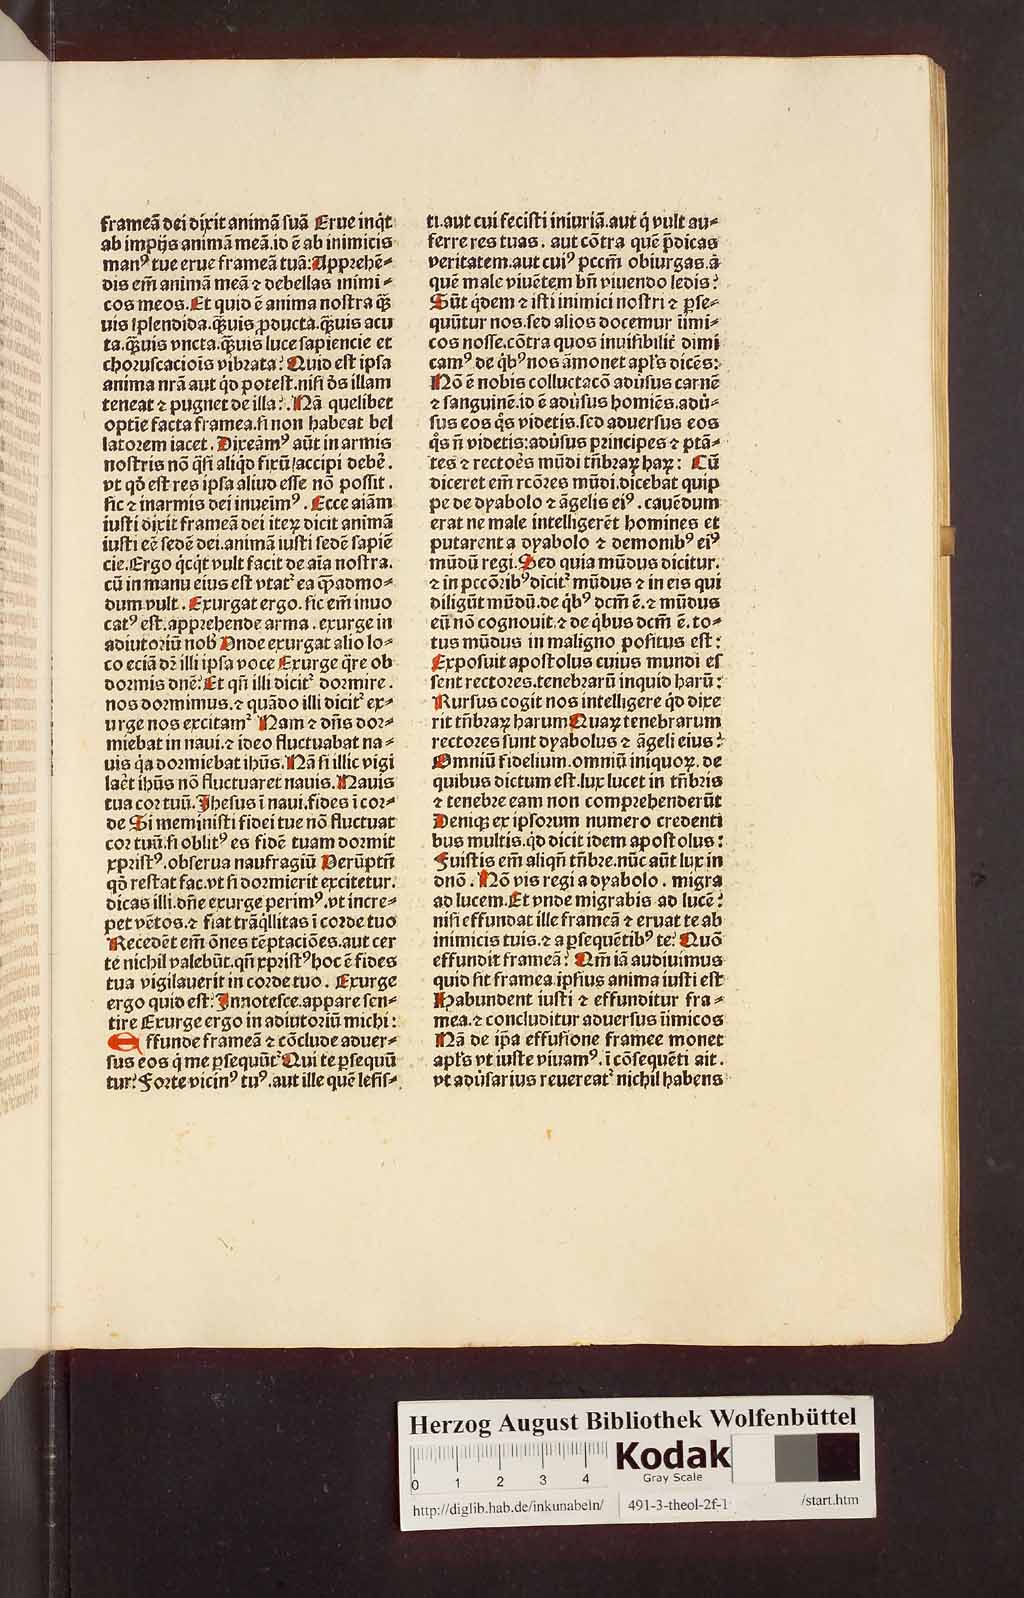 frameā dei dixit animā suā Erue inq̇t
ab impijs animā meā.id ē ab inimicis
manꝰ tue erue frameā tuā: Apprehē⸗
dis em̄ animā meā ⁊ debellas inimi⸗
cos meos. Et quid ē anima nostra q̄ꝫ
uis splendida.q̄ꝫuis ꝓducta.q̄ꝫuis acu
ta.q̄ꝫuis vncta.q̄ꝫuis luce sapiencie et
choruscaciōis vibrata? Quid est ipsa
anima nrā aut qd̓ potest.nisi dꝰs illam
teneat ⁊ pugnet de illa?. Nā quelibet
optīe facta framea.si non habeat bel
latorem iacet. Dixeāmꝰ aūt in armis
nostris nō q̄si aliqd̓ fixū accipi debē.
vt qd̓ est res ipsa aliud esse nō possit.
sic ⁊ in armis dei inveīmꝰ. Ecce aīām
iusti dixit frameā dei iteꝝ dicit animā
iusti eē sedē dei.animā iusti sedē sapiē
cie. Ergo q̇cq̇t vult facit de aīa nostra.
cū in manu eius est vtatᷣ ea qꝫadmo⸗
dum vult. Exurgat ergo. sic em̄ inuo
catꝰ est.apprehende arma. exurge in
adiutoriū nob̄ Unde exurgat alio lo⸗
co eciā dꝛ illi ipsa voce Exurge q̄re ob
dormis dnē? Et qn̄ illi dicitᷣ dormire.
nos dormimus.⁊ quādo illi dicitᷣ ex⸗
urge nos excitamᷣ Nam ⁊ dn̄s dor⸗
miebat in naui.⁊ ideo fluctuabat na⸗
uis q̇a dormiebat ihūs. Nā si illic vigi
laēt ihūs nō fluctuaret nauis. Nauis
tua cor tuū. Jhesus ī naui.fides ī cor⸗
de Si meministi fidei tue nō fluctuat
cor tuū.si oblitꝰ es fidē tuam dormit
xpristꝰ.obserua naufragiū Uerūptn̄
qd̓ restat fac.vt si dormierit excitetur.
dicas illi.dn̄e exurge perimꝰ.vt incre⸗
pet vētos.⁊ fiat trāq̇llitas ī corde tuo
Recedēt em̄ ōnes tēptaciōes.aut cer
te nichil valebūt.qn̄ xpristꝰ hoc ē fides
tua vigilauerit in corde tuo. Exurge
ergo quid est? Innotesce.appare sen⸗
tire Exurge ergo in adiutoriū michi:
Effunde frameā ⁊ cōclude aduer⸗
sus eos q̇ me ꝑsequūtᷣ Qui te ꝑsequū
tur? Forte vicinꝰ tuꝰ.aut ille quē lesis⸗
ti.aut cui fecisti iniuriā.aut q̇ vult au⸗
ferre res tuas. aut cōtra quē p̄dicas
veritatem.aut cuiꝰ pccm̄ obiurgas.ā
quē male viuētem bn̄ viuendo ledis?
Sūt q̇dem ⁊ isti inimici nostri ⁊ ꝑse⸗
quūtur nos.sed alios docemur īimi⸗
cos nosse.cōtra quos inuisibilit̄ dimi
camꝰ de q̇bꝰ nos āmonet apl̄s dicēs:
Nō ē nobis colluctacō adūsus carnē
⁊ sanguinē.id ē adūsus homiēs.adū⸗
sus eos q̇s videtis.sed aduersus eos
q̇s n̄ videtis:adūsus principes ⁊ ptā⸗
tes ⁊ rectoēs mūdi tn̄braꝝ haꝝ: Cū
diceret em̄ rcōres mūdi.dicebat quip
pe de dyabolo ⁊ āgelis eiꝰ. cauēdum
erat ne male intelligerēt homines et
putarent a dyabolo ⁊ demonibꝰ eiꝰ
mūdū regi. Sed quia mūdus dicitur.
⁊ in pccōribꝰ dicitᷣ mūdus ⁊ in eis qui
diligūt mūdū.de q̇bꝰ dcm̄ ē.⁊ mūdus
eū nō cognouit.⁊ de q̇bus dcm̄ ē.to⸗
tus mūdus in maligno positus est:
Exposuit apostolus cuius mundi es
sent rectores.tenebrarū inquid harū:
Rursus cogit nos intelligere qd̓ dixe
rit tn̄braꝝ harum Quaꝝ tenebrarum
rectores sunt dyabolus ⁊ āgeli eius?
Omniū fidelium.omniū iniquoꝝ. de
quibus dictum est.lux lucet in tn̄bris
⁊ tenebre eam non comprehenderūt
Deniqꝫ ex ipsorum numero credenti
bus multis.qd̓ dicit idem apostolus:
Fuistis em̄ aliqn̄ tn̄bre.nūc aūt lux in
dnō. Nō vis regi a dyabolo. migra
ad lucem. Et vnde migrabis ad lucē?
nisi effundat ille frameā ⁊ eruat te ab
inimicis tuis.⁊ a ꝑsequētibꝰ te? Quō
effundit frameā? Qm̄ iā audiuimus
quid sit framea ipsius anima iusti est
Habundent iusti ⁊ effunditur fra⸗
mea.⁊ concluditur aduersus īimicos
Nā de ip̄a effusione framee monet
apl̄s vt iuste viuamꝰ. ī cōsequēti ait.
vt adūsarius reuereatᷣ nichil habens
Herzog August Bibliothek Wolfenbüttel
0 1 2 3 4
Kodak
Gray Scale
http://diglib.hab.de/inkunabeln/ 491-3-theol-2f-1 /start.htm